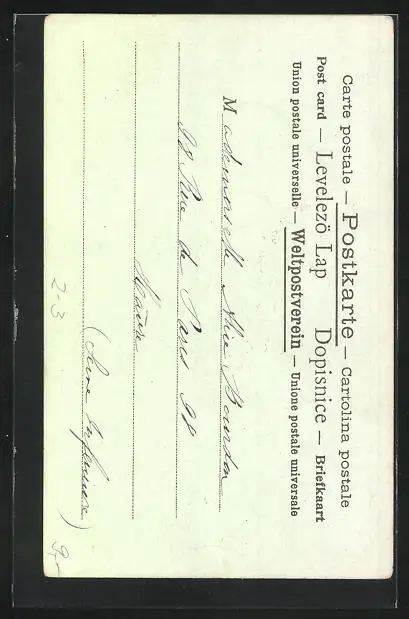 Carte postale — Postkarte — Cartolina postale
Post card — Levelezö Lap Dopisnice — Briefkaart
Union postale universelle — Weltpostverein — Unione postale universale
Mademoiselle Alice
98 Rue de Paris 98
Havre
(Seine Inférieure)
2-3
9,-